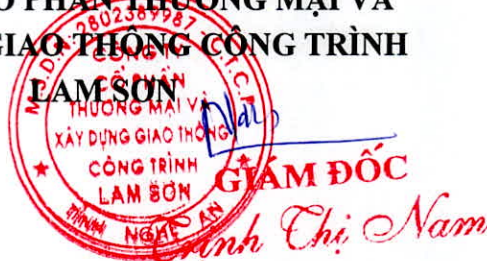 PHẦN THƯƠNG MẠI VÀ
GIAO THÔNG CÔNG TRÌNH
LAM SƠN
M.S.D.N: 2802389987 - C.T.C.P
CÔNG TY
CỔ PHẦN
THƯƠNG MẠI VÀ
XÂY DỰNG GIAO THÔNG
CÔNG TRÌNH
LAM SƠN
TỈNH NGHỆ AN
GIÁM ĐỐC
Trịnh Thị Nam